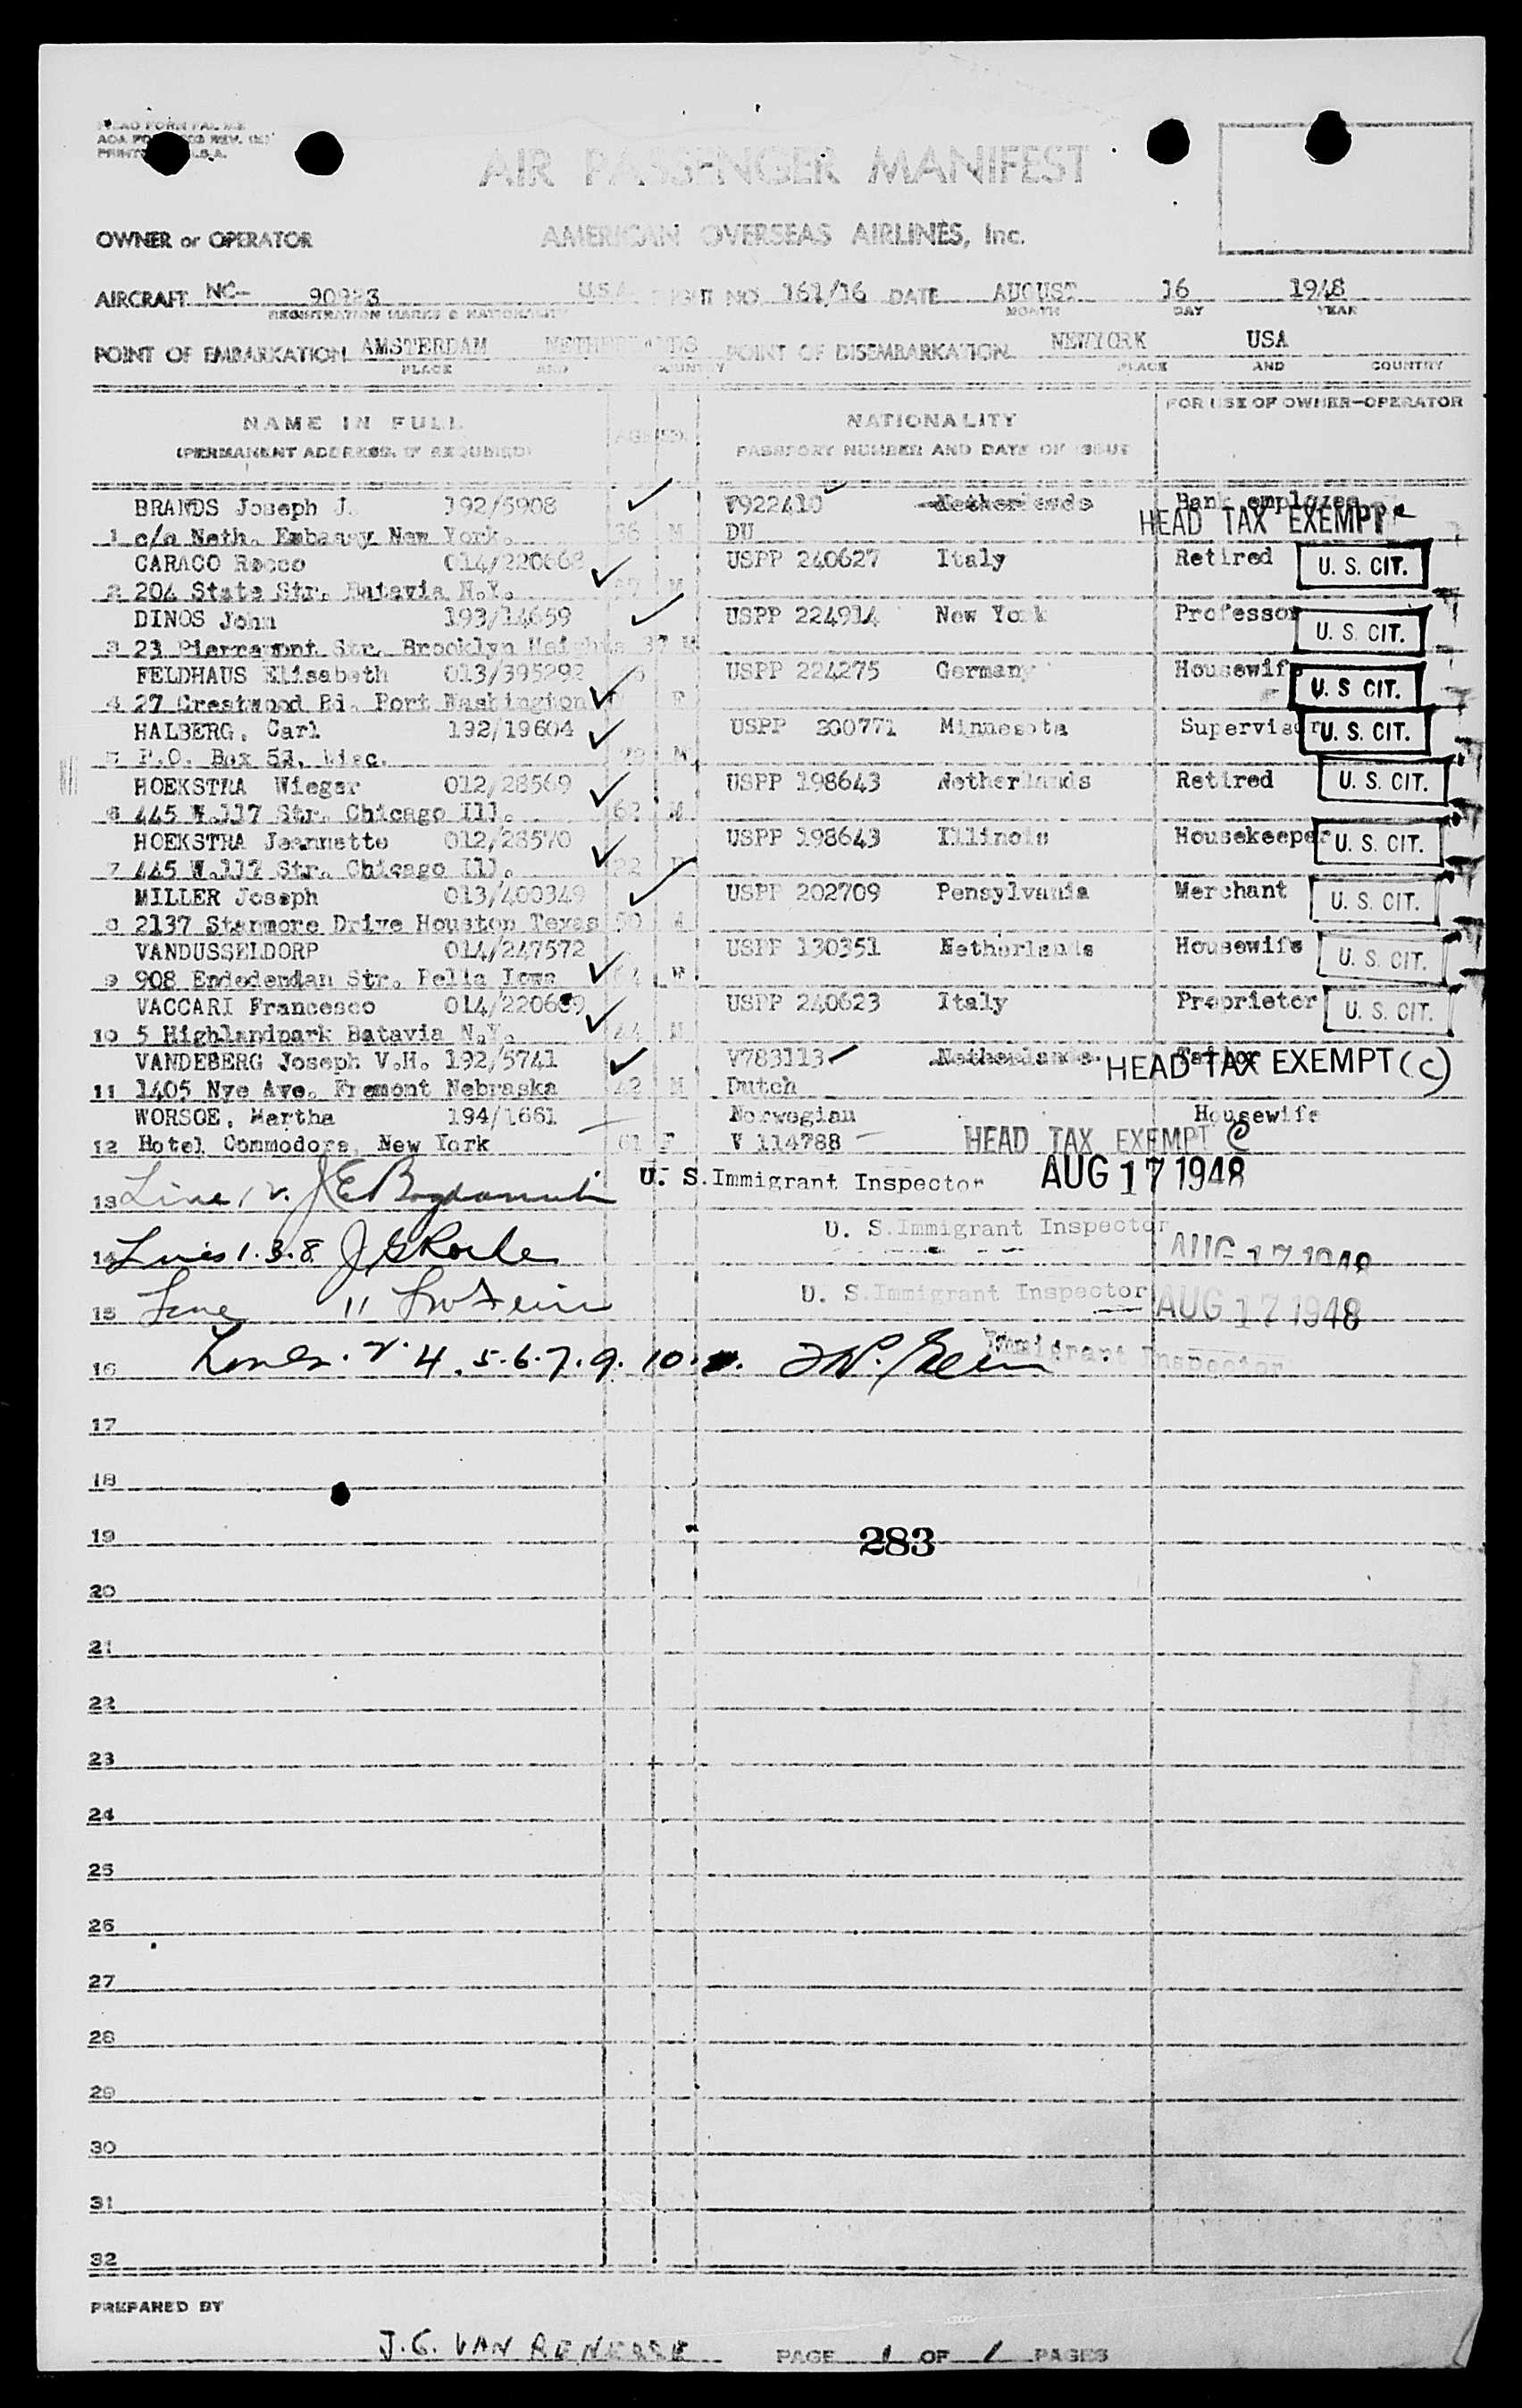 AIR PASSENGER MANIFEST
OWNER or OPERATOR AMERICAN OVERSEAS AIRLINES, Inc.
AIRCRAFT NC- U.S.A. NO. 161/16 DATE AUGUST 16 1948
REGISTRATION MARKS & NATIONALITY MONTH DAY YEAR
POINT OF EMBARKATION AMSTERDAM NETHERLANDS POINT OF DISEMBARKATION NEWYORK USA
PLACE AND COUNTRY PLACE AND COUNTRY
NAME IN FULL NATIONALITY FOR USE OF OWNER-OPERATOR
(PERMANENT ADDRESS, IF REQUIRED) AGE PASSPORT NUMBER AND DATE OF ISSUE
BRANDS Joseph J. 192/5908 V922410 Netherlands Bank employee
1 c/o Neth. Embassy New York. 36 M DU HEAD TAX EXEMPT
CARACO Rocco 014/220668 USPP 240627 Italy Retired U. S. CIT.
2 204 State Str. Batavia N.Y. M
DINOS John 193/14659 USPP 224914 New York Professor U. S. CIT.
3 23 Pierrepont Str. Brooklyn Heights 37 M
FELDHAUS Elisabeth 013/395292 USPP 224275 Germany Housewife U. S CIT.
4 27 Crestwood Rd. Port Washington F
HALBERG, Carl 192/19604 USPP Minnesota Supervisor U. S. CIT.
5 P.O. Box 53, Wisc. M
HOEKSTRA Wieger 012/28569 USPP 198643 Netherlands Retired U. S. CIT.
6 445 W.117 Str. Chicago Ill. 62 M
HOEKSTRA Jeannette 012/28570 USPP 198643 Illinois Housekeeper U. S. CIT.
7 445 W.117 Str. Chicago Ill. 22
MILLER Joseph 013/400349 USPP 202709 Pensylvania Merchant U. S. CIT.
8 2137 Stanmore Drive Houston Texas 50
VANDUSSELDORP 014/247572 USPP 130351 Netherlands Housewife U. S. CIT.
9 908 Str. Pella Iowa
VACCARI Francesco USPP 240623 Italy Proprietor U. S. CIT.
10 5 Highlandpark Batavia N.Y. 44 M
VANDEBERG Joseph V.H. 192/5741 V783113 Netherlands. Tailor HEAD TAX EXEMPT (C)
11 1405 Nye Ave. Fremont Nebraska 42 M Dutch
WORSOE, Martha 194/1661 Norwegian Housewife
12 Hotel Commodore, New York 61 F V 114788 HEAD TAX EXEMPT C
U. S. Immigrant Inspector AUG 17 1948
13 Line
U. S. Immigrant Inspector AUG 17 1948
14 Lines 1. 3. 8
15 Line 11 U. S. Immigrant Inspector AUG 17 1948
16 Lines. 2. 4. 5. 6. 7. 9. 10. Immigrant Inspector
17
18
19 283
20
21
22
23
24
25
26
27
28
29
30
31
32
PREPARED BY
PAGE 1 OF 1 PAGES